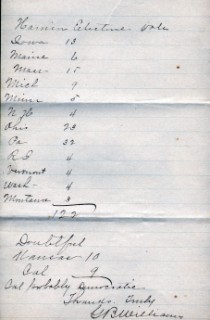 Harrison Electoral vote
Iowa 13
Maine 6
Mass 15
Mich 9
Minn 5
N H 4
Ohio 23
Pa 32
R I 4
Vermont 4
Wash 4
Montana 3
122
Doubtful
Kansas 10
Cal 9
Cal Probably Democratic
Truly
Williams